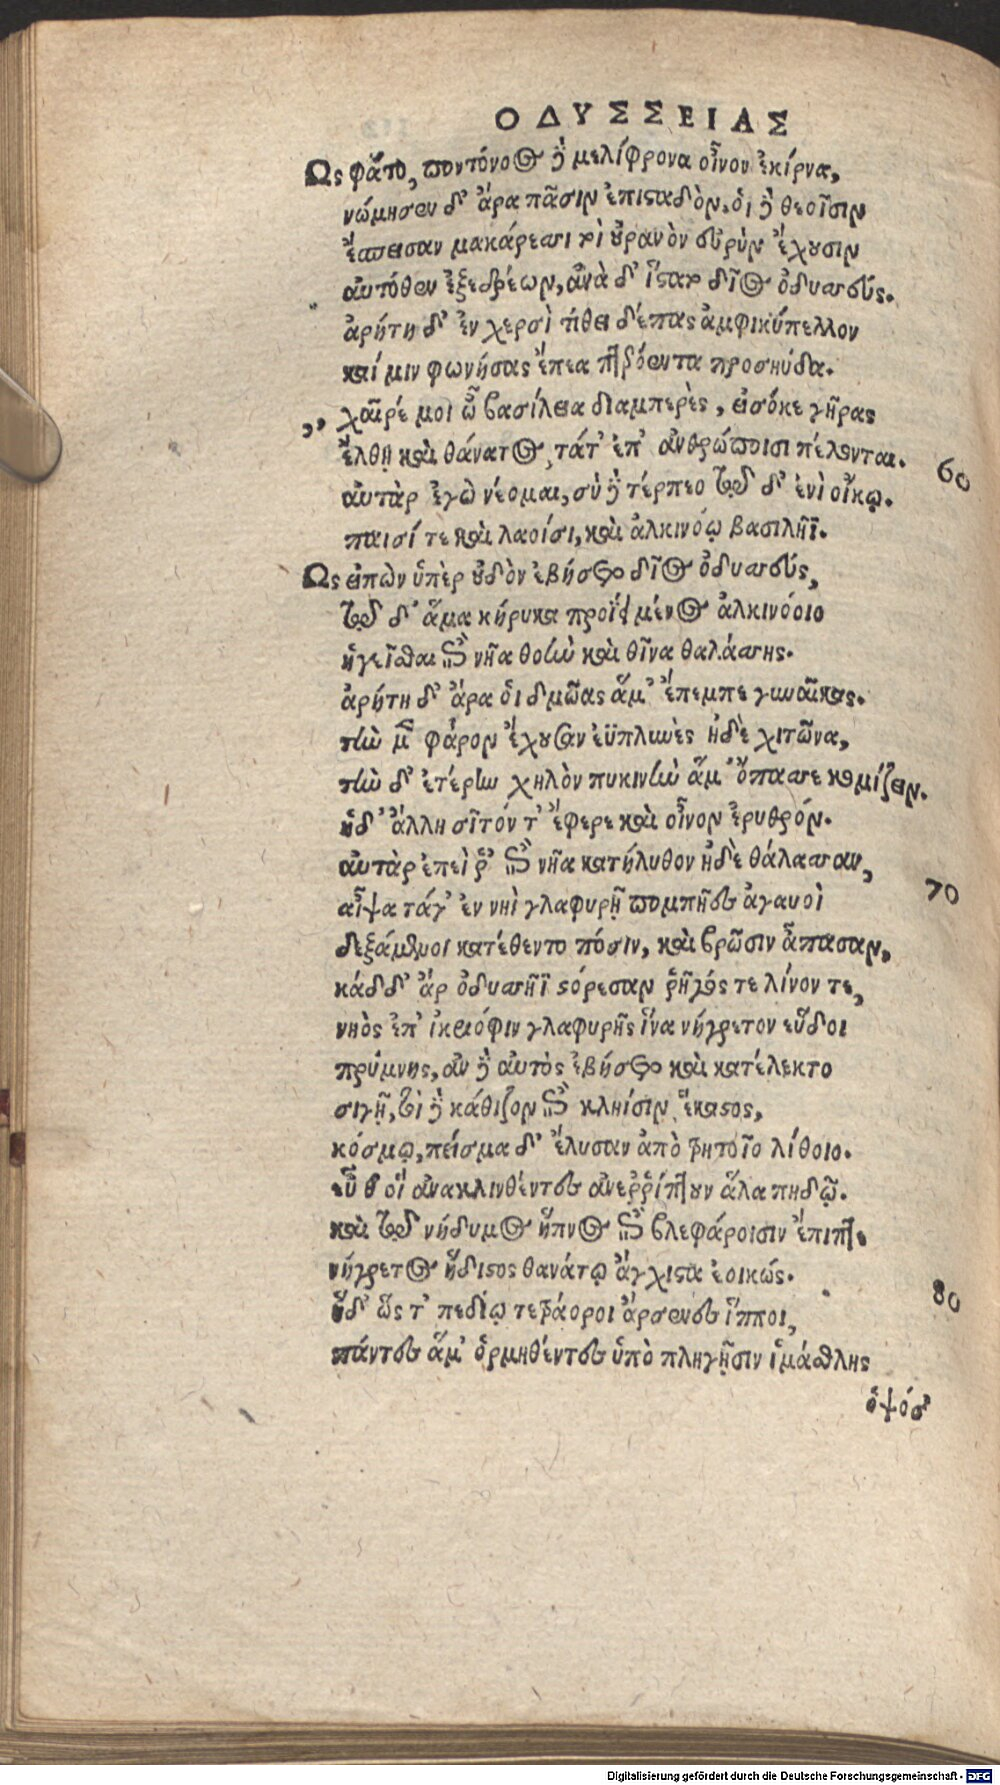 ΟΔΥΣΣΕΙΑΣ
Ως φάτο, ποντόνοος δὲ μελίφρονα οἶνον ἐκίρνα,
νώμησεν δ' ἄρα πᾶσιν ἐπισταδὸν, ὁι δὲ θεοῖσιν
ἔσπεισαν μακάρεσσι τοὶ οὐρανὸν εὐρὺν ἔχουσιν
αὐτόθεν ἐξ ἑδρέων, ἀνὰ δ' ἵστατο δῖος ὀδυσσεύς.
ἀρήτῃ δ' ἐν χερσὶ τίθει δέπας ἀμφικύπελλον
καί μιν φωνήσας ἔπεα πτερόεντα προσηύδα.
,, χαῖρέ μοι ὦ βασίλεια διαμπερὲς, εἰσόκε γῆρας
ἔλθῃ καὶ θάνατος, τάτ' ἐπ' ἀνθρώποισι πέλονται. 60
αὐτὰρ ἐγὼ νέομαι, σὺ δὲ τέρπεο τῷδ' ἐνὶ οἴκῳ.
παισί τε καὶ λαοίσι, καὶ ἀλκινόῳ βασιλῆϊ.
Ως εἰπὼν ὑπὲρ οὐδὸν ἐβήσετο δῖος ὀδυσσεύς,
τῷ δ' ἅμα κήρυκα προΐει μένος ἀλκινόοιο
ἡγεῖσθαι ἐπὶ νῆα θοὴν καὶ θῖνα θαλάσσης.
ἀρήτη δ' ἄρα ὁι δμῶας ἅμ' ἔπεμπε γυναῖκας.
τὴν μὲν φᾶρον ἔχουσαν ἐϋπλυνὲς ἠδὲ χιτῶνα,
τὴν δ' ἑτέρην χηλὸν πυκινὴν ἅμ' ὄπασσε κομίζειν.
ἡδ' ἄλλη σῖτόν τ' ἔφερε καὶ οἶνον ἐρυθρόν.
αὐτὰρ ἐπεὶ ῥ' ἐπὶ νῆα κατήλυθον ἠδὲ θάλασσαν, 70
αἶψα τάγ' ἐν νηὶ γλαφυρῇ πομπῆες ἀγαυοὶ
δεξάμενοι κατέθεντο πόσιν, καὶ βρῶσιν ἅπασαν,
κάδδ' ἄρ ὀδυσσῆϊ στόρεσαν ῥῆγός τε λίνον τε,
νηὸς ἐπ' ἰκριόφιν γλαφυρῆς ἵνα νήγρετον εὕδοι
πρύμνης, ἂν δὲ αὐτὸς ἐβήσετο καὶ κατέλεκτο
σιγῇ, τοὶ δὲ κάθιζον ἐπὶ κληίσιν ἕκαστος,
κόσμῳ, πείσμα δ' ἔλυσαν ἀπὸ τρητοῖο λίθοιο.
εὖθ οἵ ἀνακλινθέντες ἀνερρίπτουν ἅλα πηδῷ.
καὶ τῷ νήδυμος ὕπνος ἐπὶ βλεφάροισιν ἔπιπτε
νήγρετος ἥδιστος θανάτῳ ἄγχιστα ἐοικώς. 80
ἡδ' ὥς τ' πεδίῳ τετράοροι ἄρσενες ἵπποι,
πάντες ἅμ' ὁρμηθέντες ὑπὸ πληγῇσιν ἱμάσθλης
ὑψόσ'
Digitalisierung gefördert durch die Deutsche Forschungsgemeinschaft - DFG